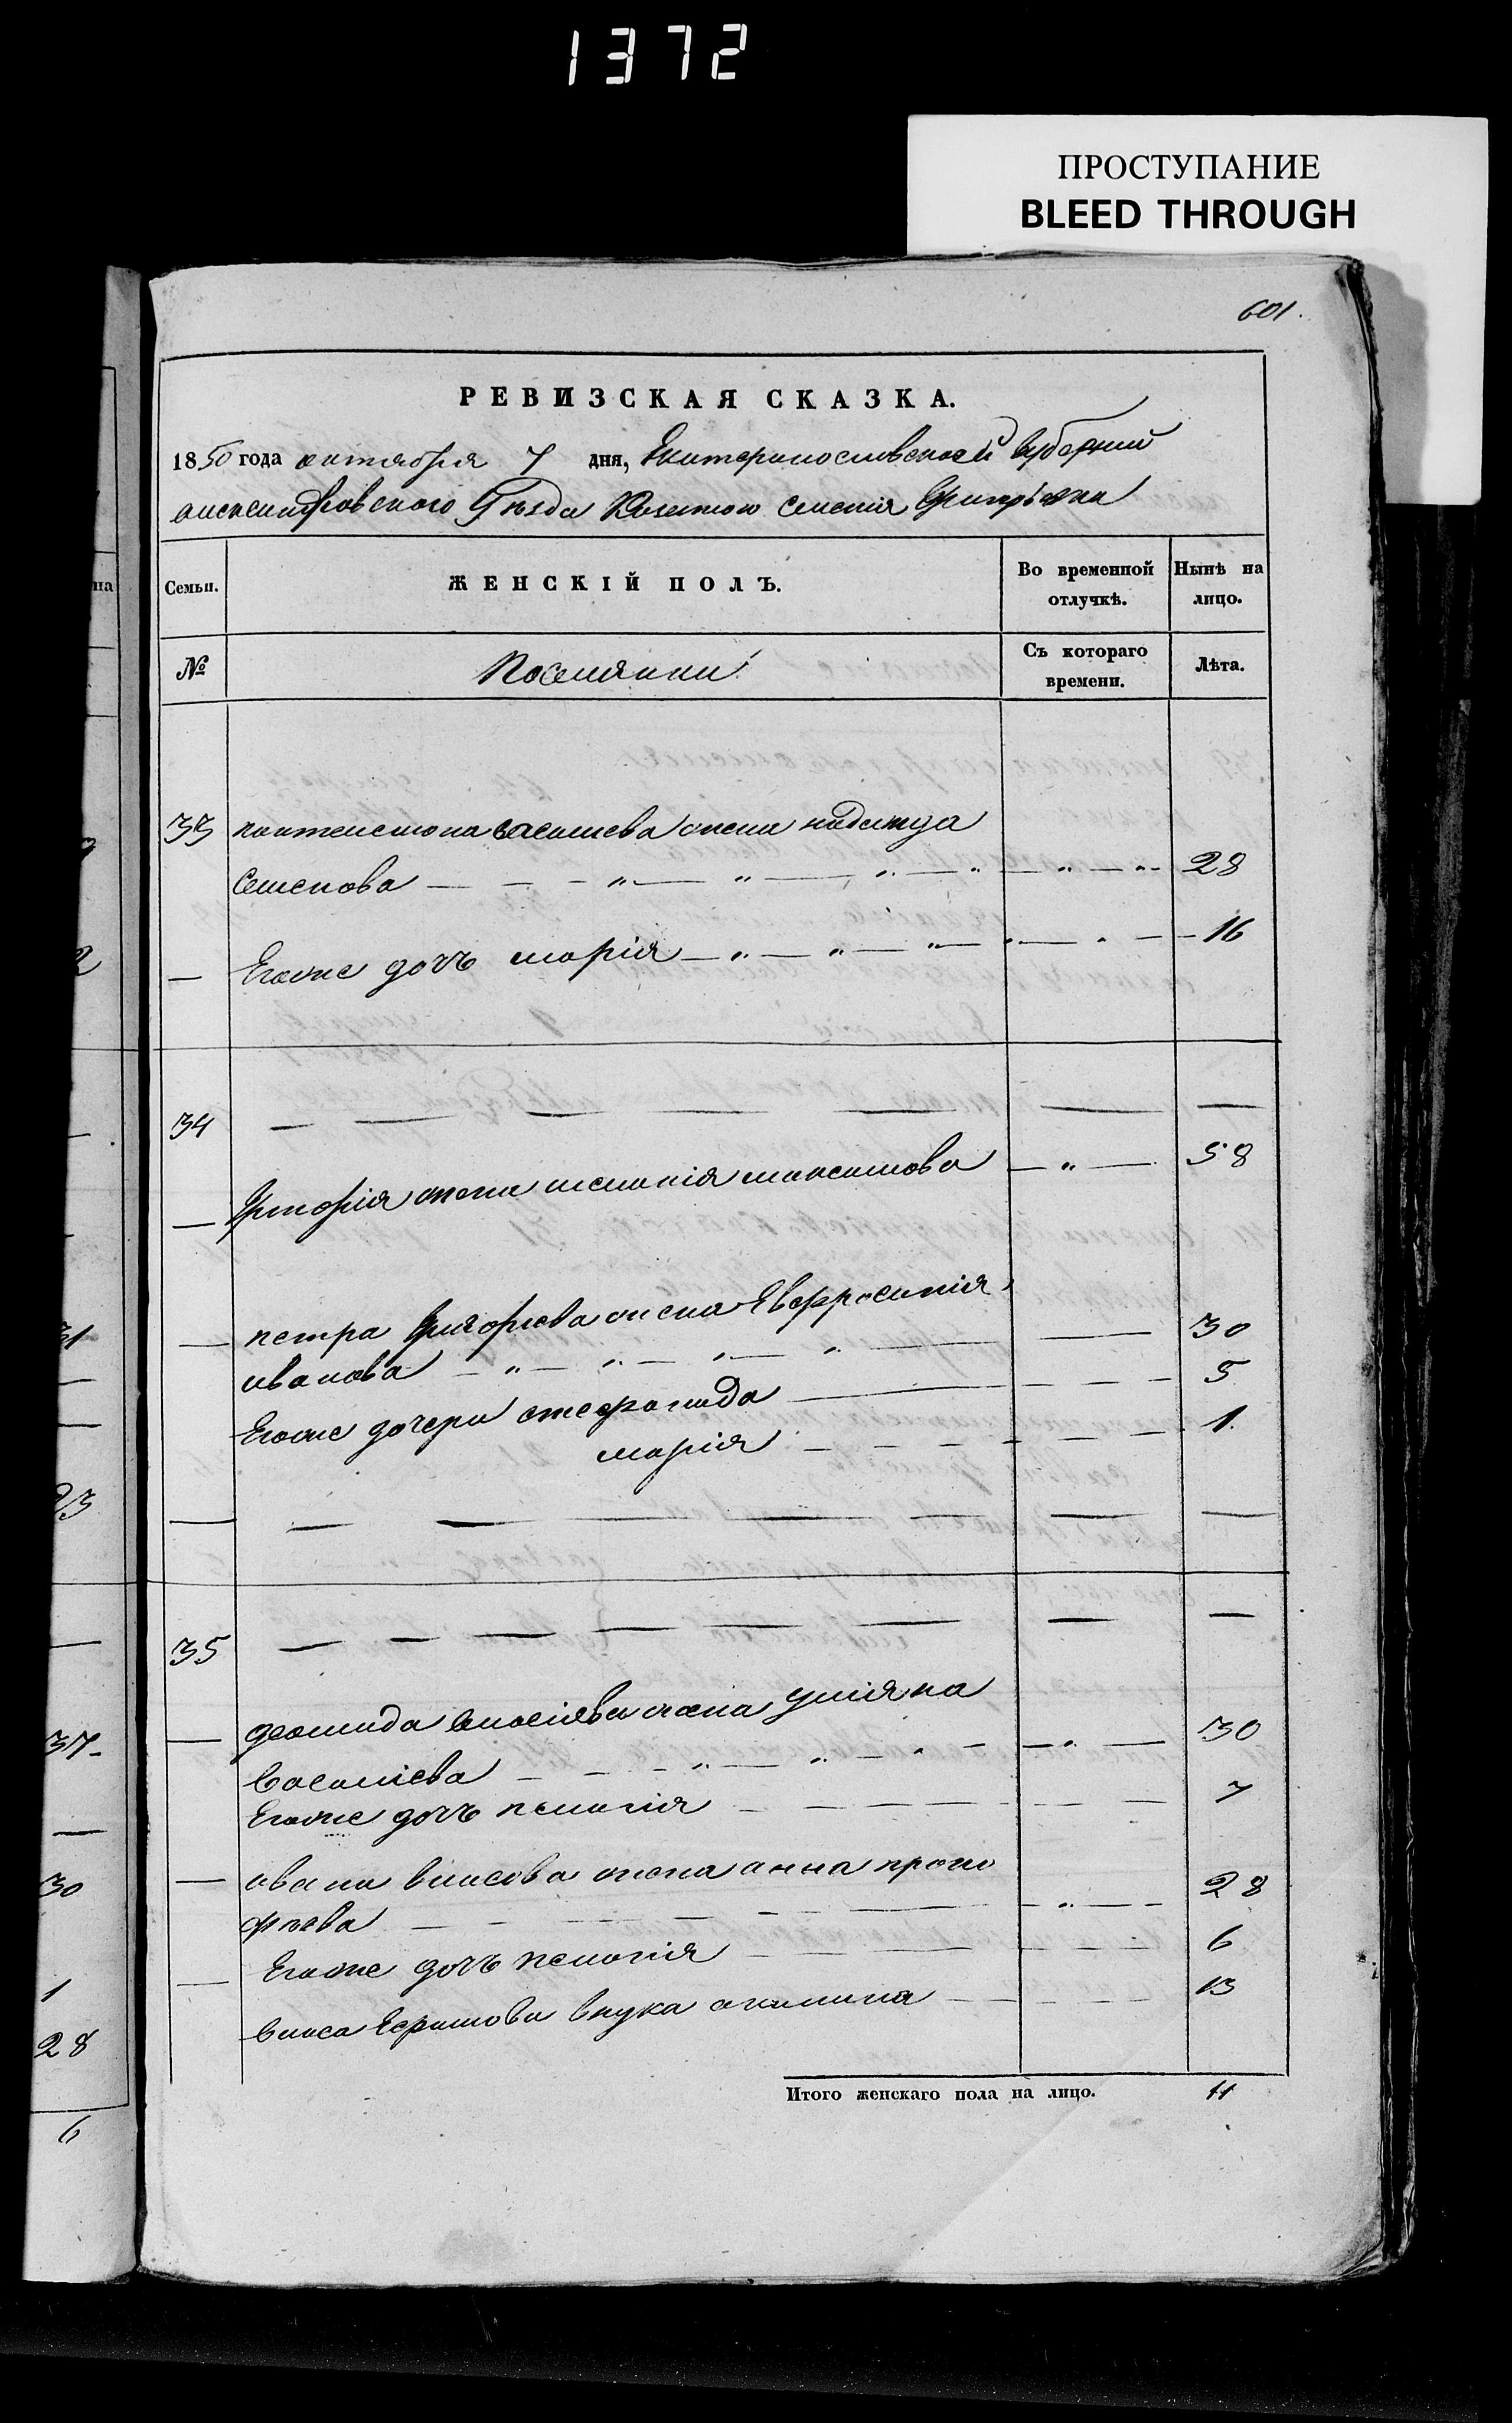 1372
ПРОСТУПАНИЕ
BLEED THROUGH
601.
РЕВИЗСКАЯ СКАЗКА.
1850 года октября 7 дня, Екатеринославской губернии
александровского Уезда Казенного селения
Семьи.
ЖЕНСКІЙ ПОЛЪ.
Во временной отлучкѣ.
Нынѣ на лицо.
№
Поселянки
Съ котораго времени.
Лѣта.
33 пантелемона васильева жена надежда
Семенова 28
— Егоже дочь марія 16
34
— жена меланія максимова 58
— петра Григорьева жена Евфросинія
иванова 30
Егоже дочери стефанида 5
марія 1.
35
— деомида власіева жена уліяна
Васильева 30
Егоже дочь пелагія 7
— ивана власова жена анна проко
фьева 28
— Егоже дочь пелагія 6
власа Ефимова внука акилина 13
Итого женскаго пола на лицо. 11
на
31
23
37
30
1
28
6